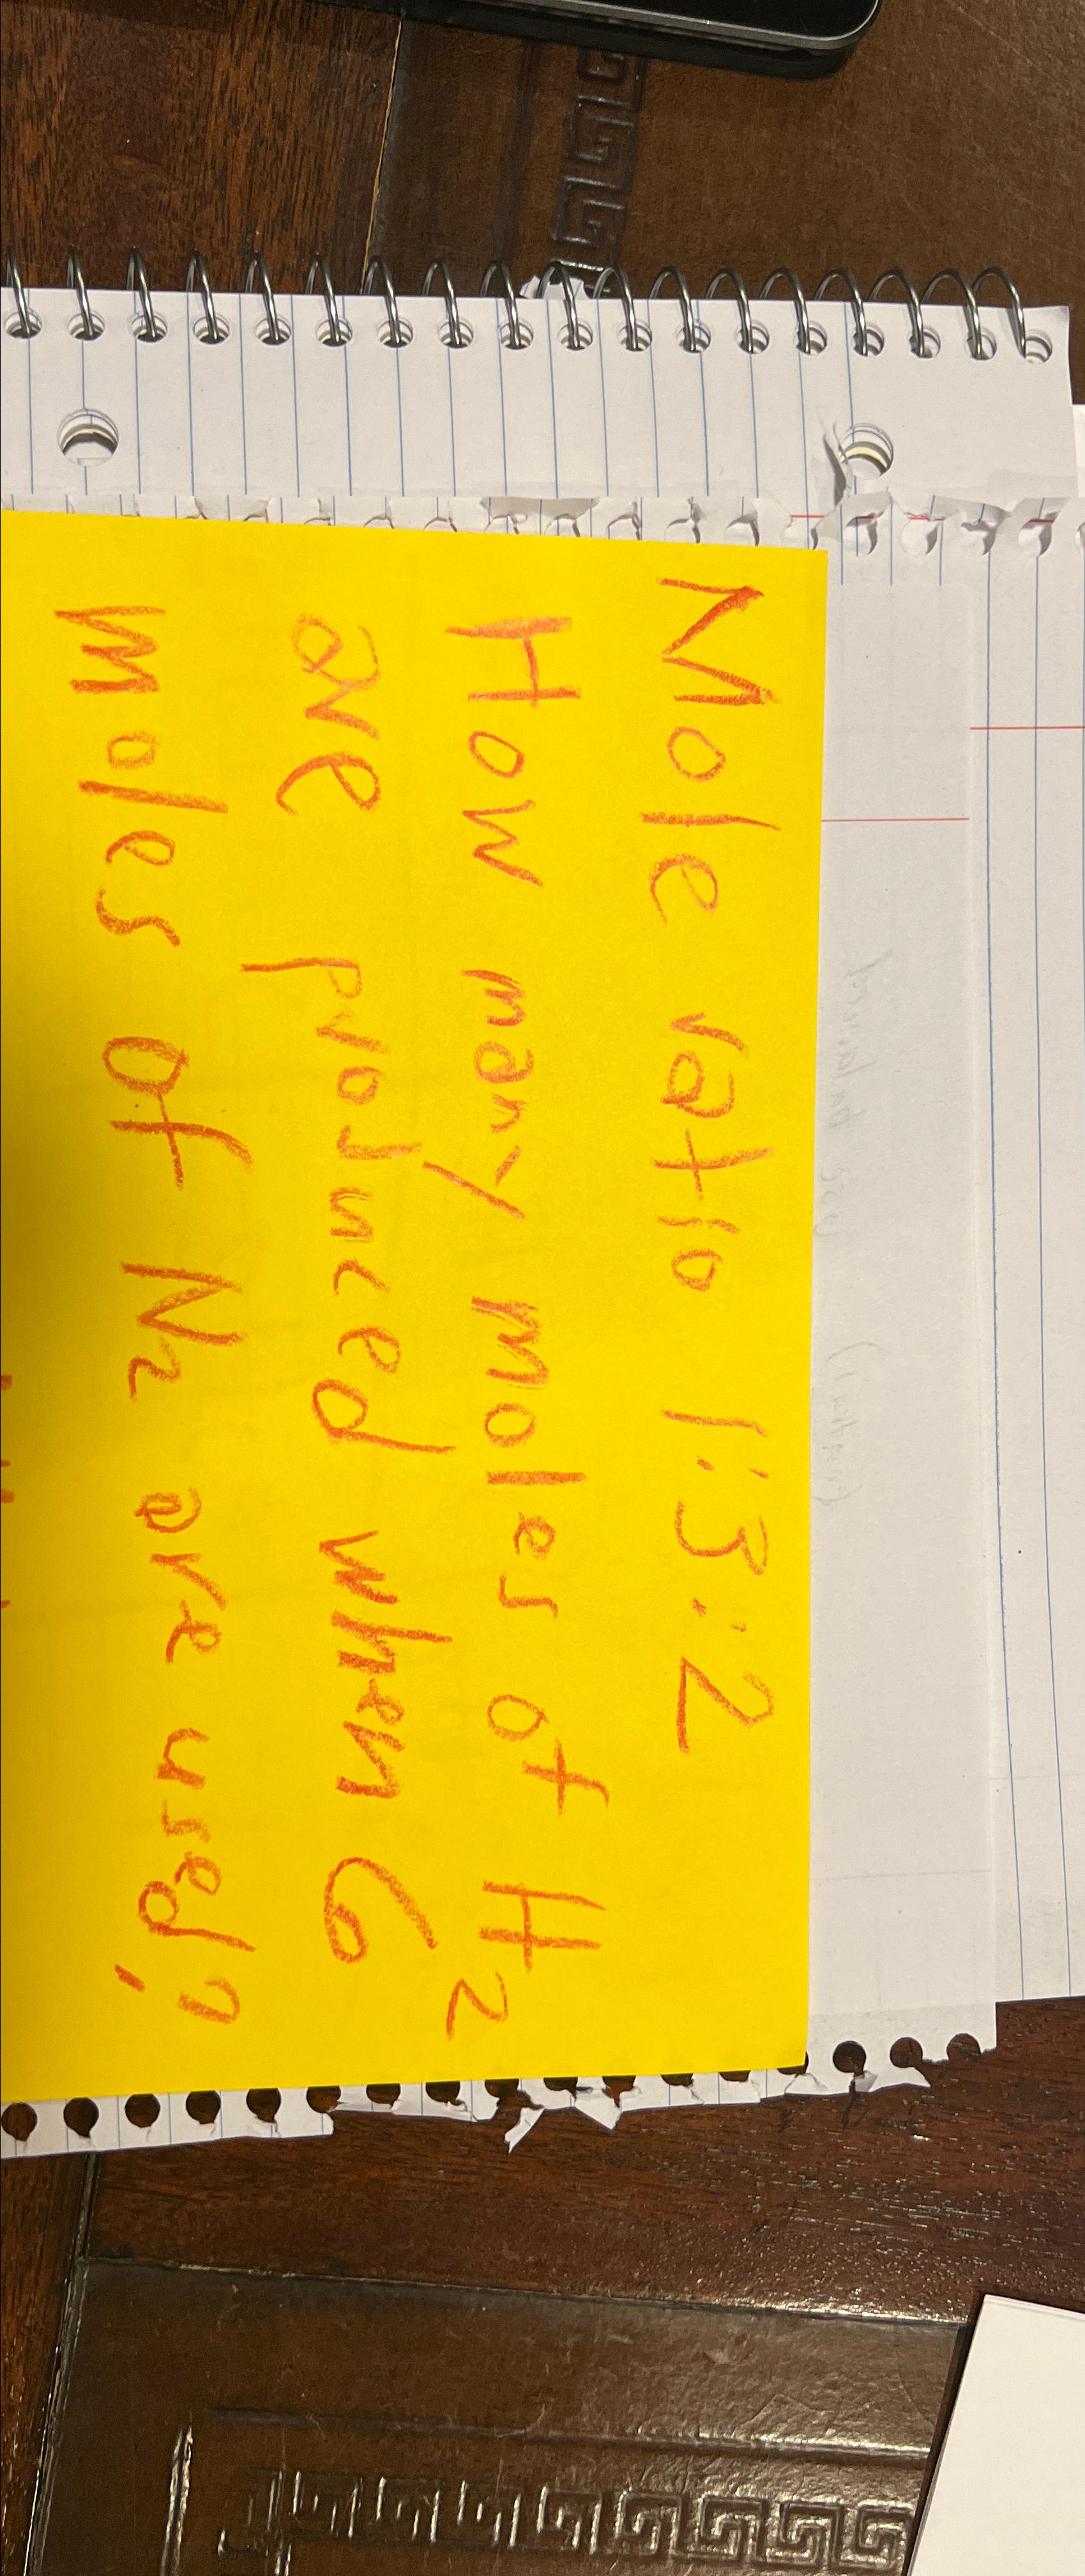 Mole ratio 1:3:2
How many moles of H2
are produced when 6
moles of N2 are used?